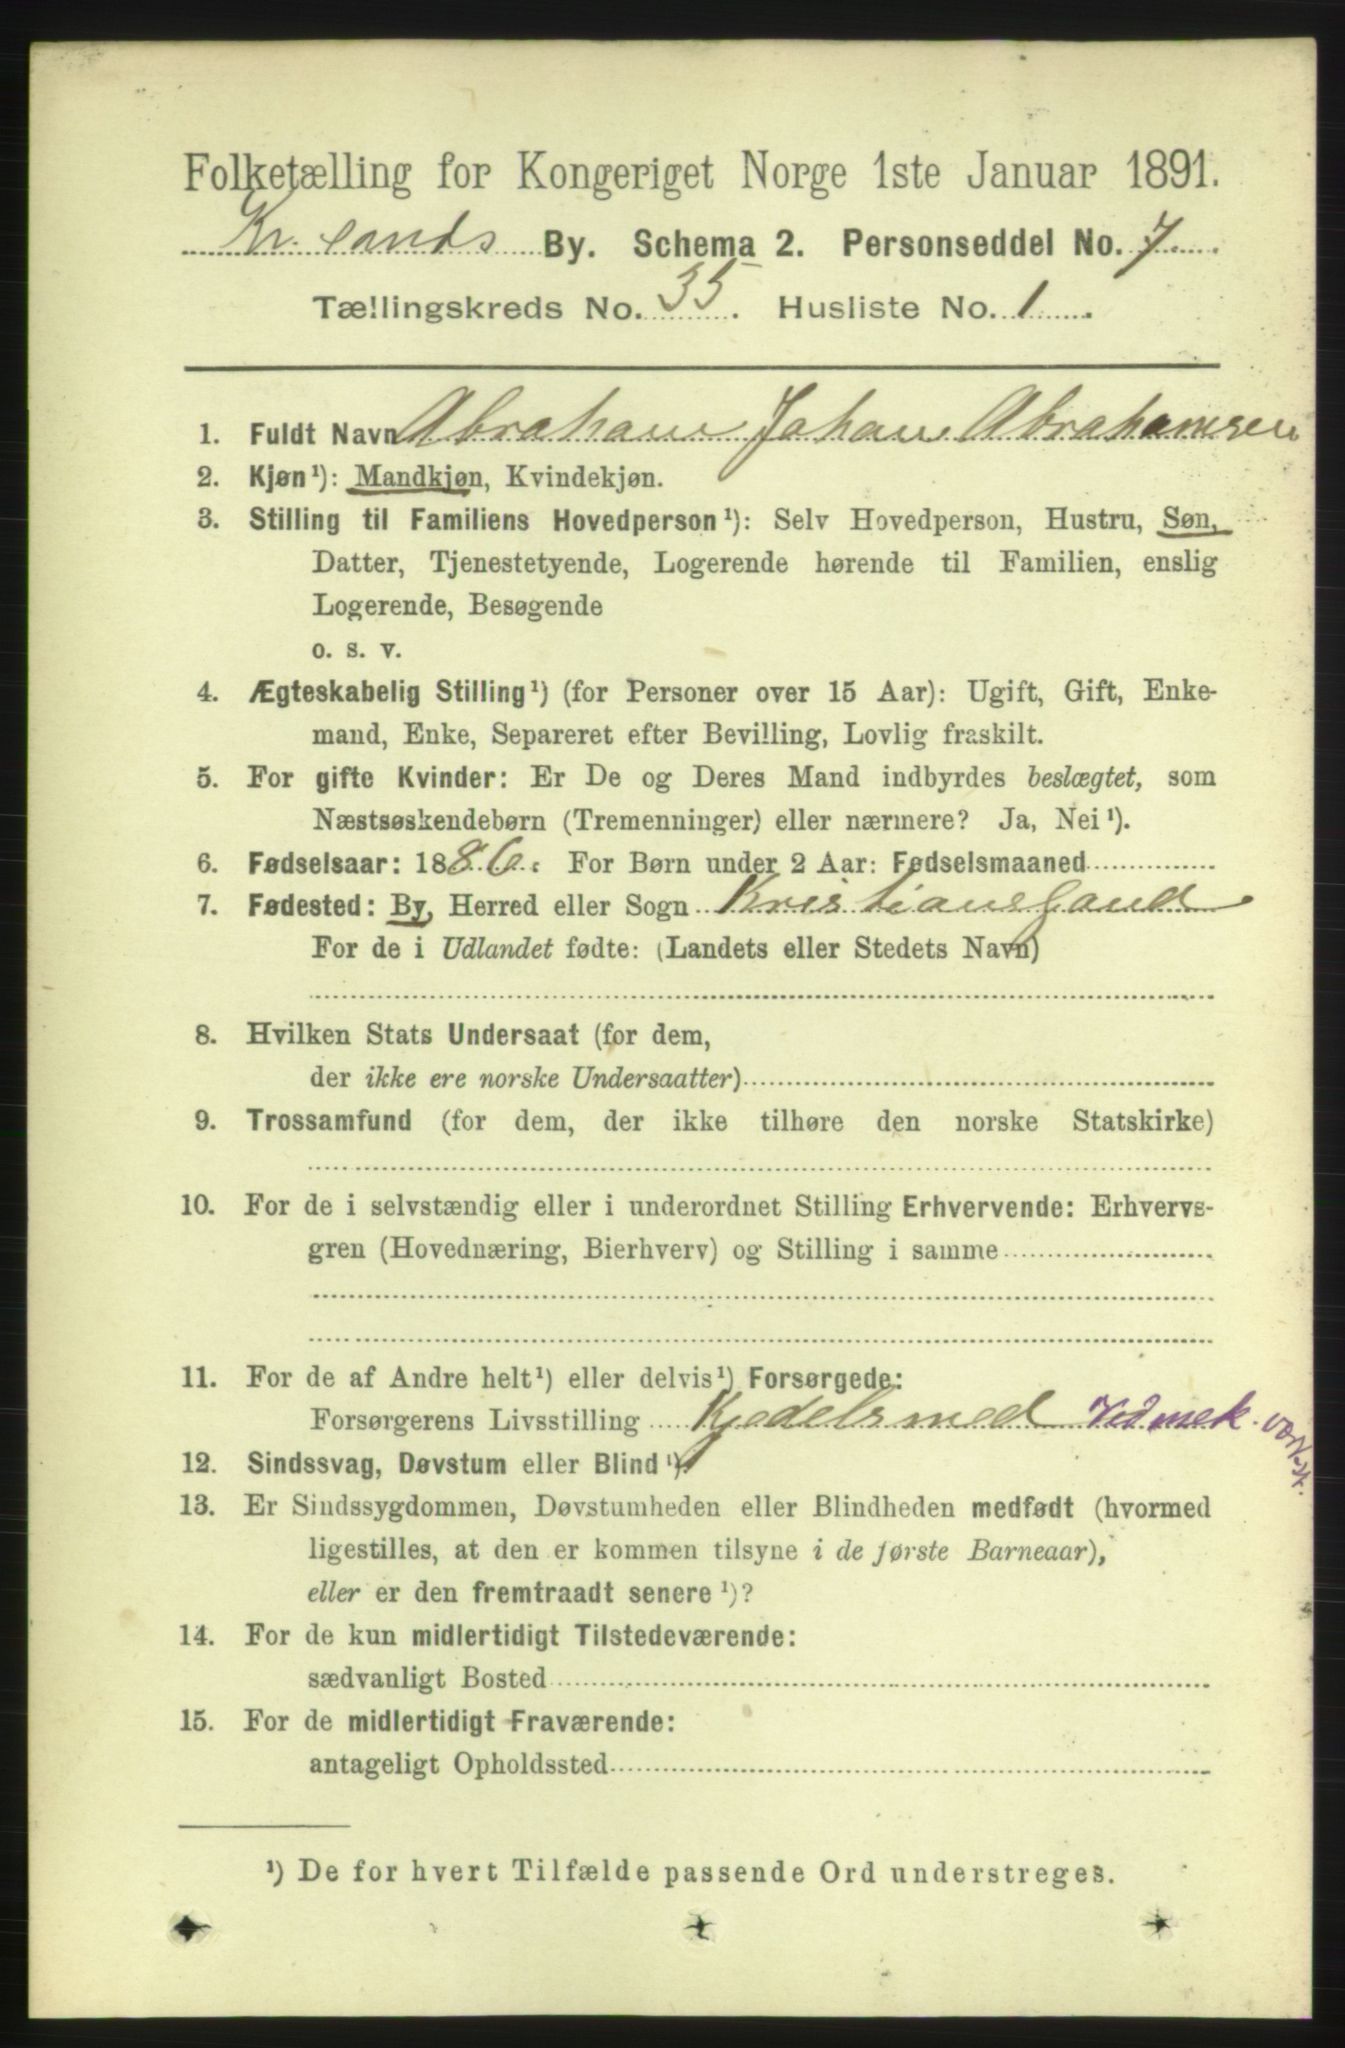 Folketælling for Kongeriget Norge 1ste Januar 1891.
Kr. sands By. Schema 2. Personseddel No. 7
Tællingskreds No. 35. Husliste No. 1.
1. Fuldt Navn Abraham Johan Abrahamsen
2. Kjøn¹): Mandkjøn, Kvindekjøn.
3. Stilling til Familiens Hovedperson¹): Selv Hovedperson, Hustru, Søn,
Datter, Tjenestetyende, Logerende hørende til Familien, enslig
Logerende, Besøgende
o. s. v.
4. Ægteskabelig Stilling¹) (for Personer over 15 Aar): Ugift, Gift, Enke-
mand, Enke, Separeret efter Bevilling, Lovlig fraskilt.
5. For gifte Kvinder: Er De og Deres Mand indbyrdes beslægtet, som
Næstsøskendebørn (Tremenninger) eller nærmere? Ja, Nei¹).
6. Fødselsaar: 1886. For Børn under 2 Aar: Fødselsmaaned
7. Fødested: By, Herred eller Sogn Kristianssand
For de i Udlandet fødte: (Landets eller Stedets Navn)
8. Hvilken Stats Undersaat (for dem,
der ikke ere norske Undersaatter)
9. Trossamfund (for dem, der ikke tilhøre den norske Statskirke)
10. For de i selvstændig eller i underordnet Stilling Erhvervende: Erhvervs-
gren (Hovednæring, Bierhverv) og Stilling i samme
11. For de af Andre helt¹) eller delvis¹) Forsørgede:
Forsørgerens Livsstilling Kjedelsmed Ved mek. værkst.
12. Sindssvag, Døvstum eller Blind¹).
13. Er Sindssygdommen, Døvstumheden eller Blindheden medfødt (hvormed
ligestilles, at den er kommen tilsyne i de første Barneaar),
eller er den fremtraadt senere¹)?
14. For de kun midlertidigt Tilstedeværende:
sædvanligt Bosted
15. For de midlertidigt Fraværende:
antageligt Opholdssted
¹) De for hvert Tilfælde passende Ord understreges.